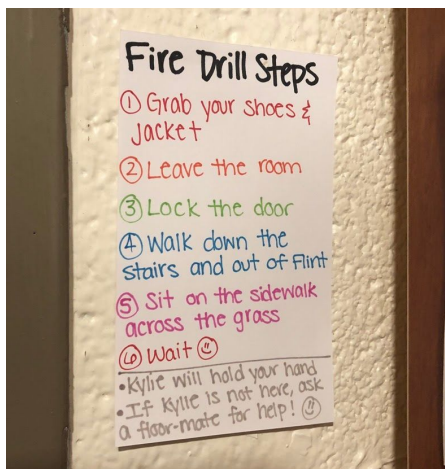 Fire Drill Steps
① Grab your shoes &
Jacket
② Leave the room
③ Lock the door
④ Walk down the
stairs and out of Flint
⑤ Sit on the sidewalk
across the grass
⑥ Wait ☺
• Kylie will hold your hand
• If Kylie is not here, ask
a floor-mate for help! ☺